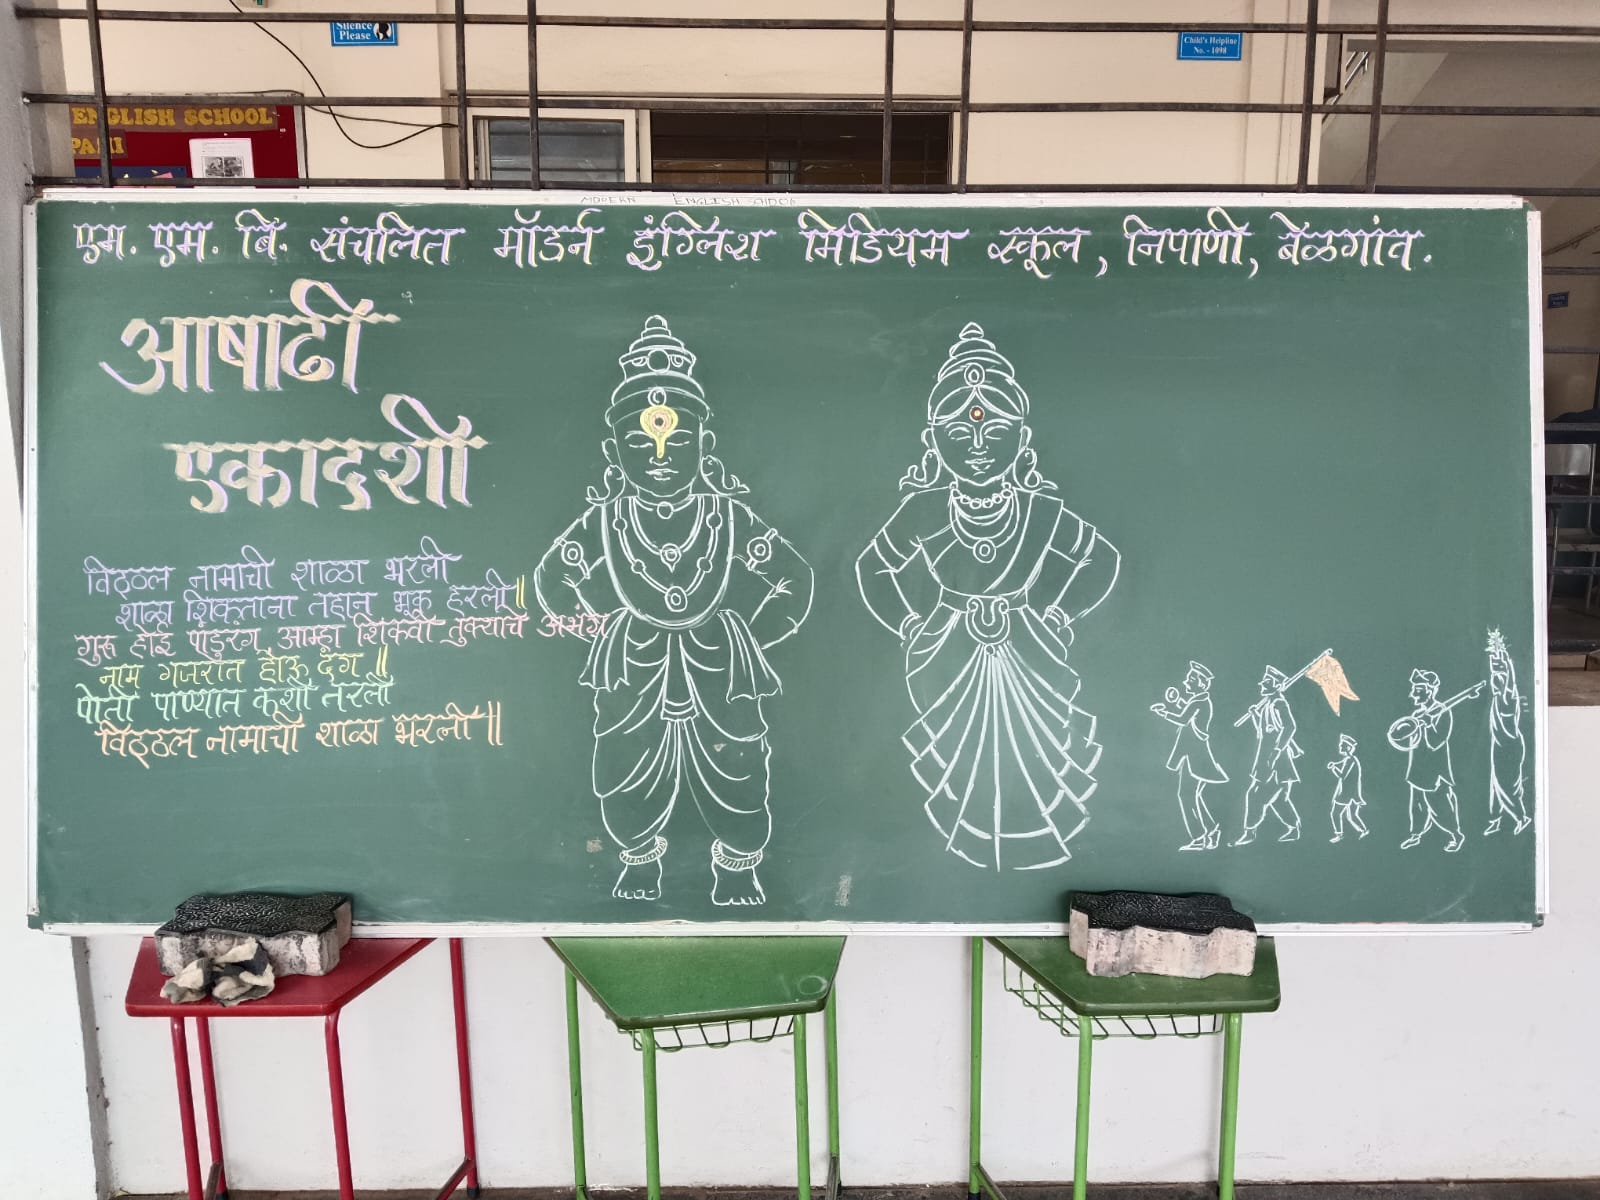 Silence
Please
Child's Helpline
No. - 1098
ENGLISH SCHOOL
PANI
MODERN ENGLISH SCHOOL
एम. एम. बि. संचलित मॉडर्न इंग्लिश मिडियम स्कूल, निपाणी, बेळगांव.
आषाढी
एकादशी
विठ्ठल नामाची शाळा भरली
शाळा शिकताना तहान भूक हरली॥
गुरू होई पांडुरंग, आम्हा शिकवी तुक्याचे अभंग
नाम गजरात होऊ दंग ॥
पोती पाण्यात कशी तरली
विठ्ठल नामाची शाळा भरली ॥